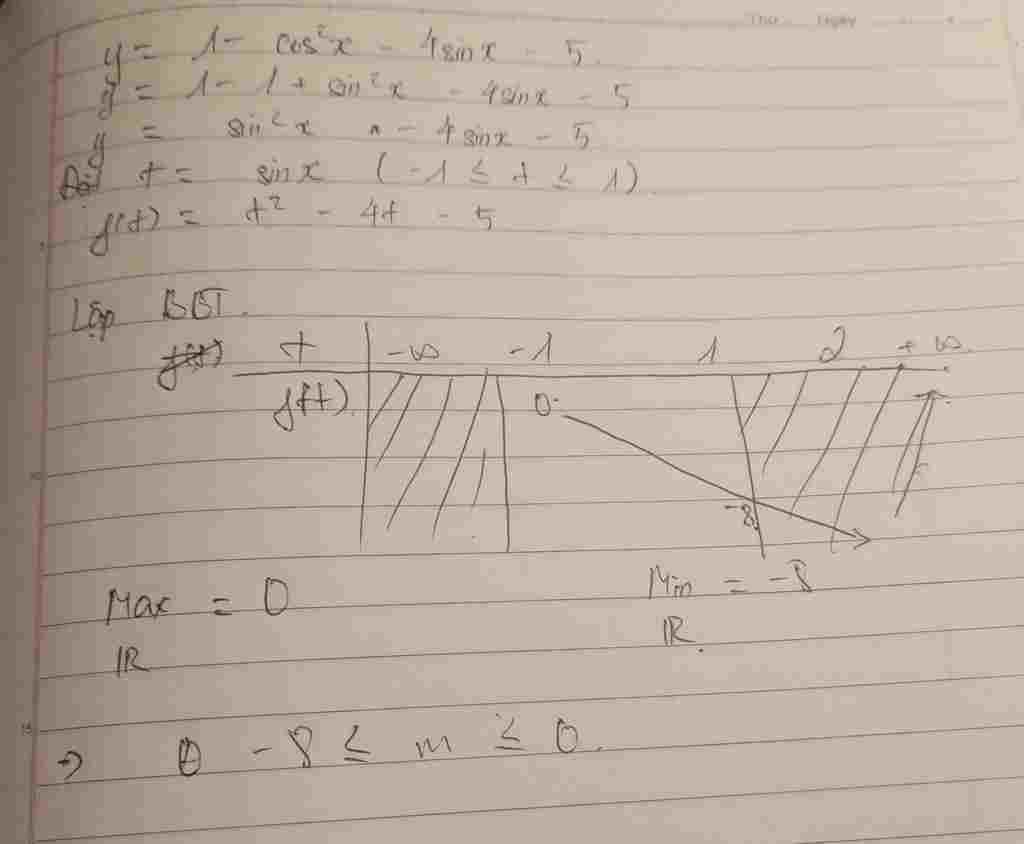 Thứ Ngày
y = 1 - cos²x - 4sinx - 5.
y = 1 - 1 + sin²x - 4sinx - 5
y = sin²x - 4sinx - 5
Đặt t = sinx (-1 ≤ t ≤ 1).
f(t) = t² - 4t - 5
Lập BBT.
t -∞ -1 1 2 +∞
f(t) 0 -8
Max = 0 Min = -8
ℝ ℝ.
⇒ -8 ≤ m ≤ 0.